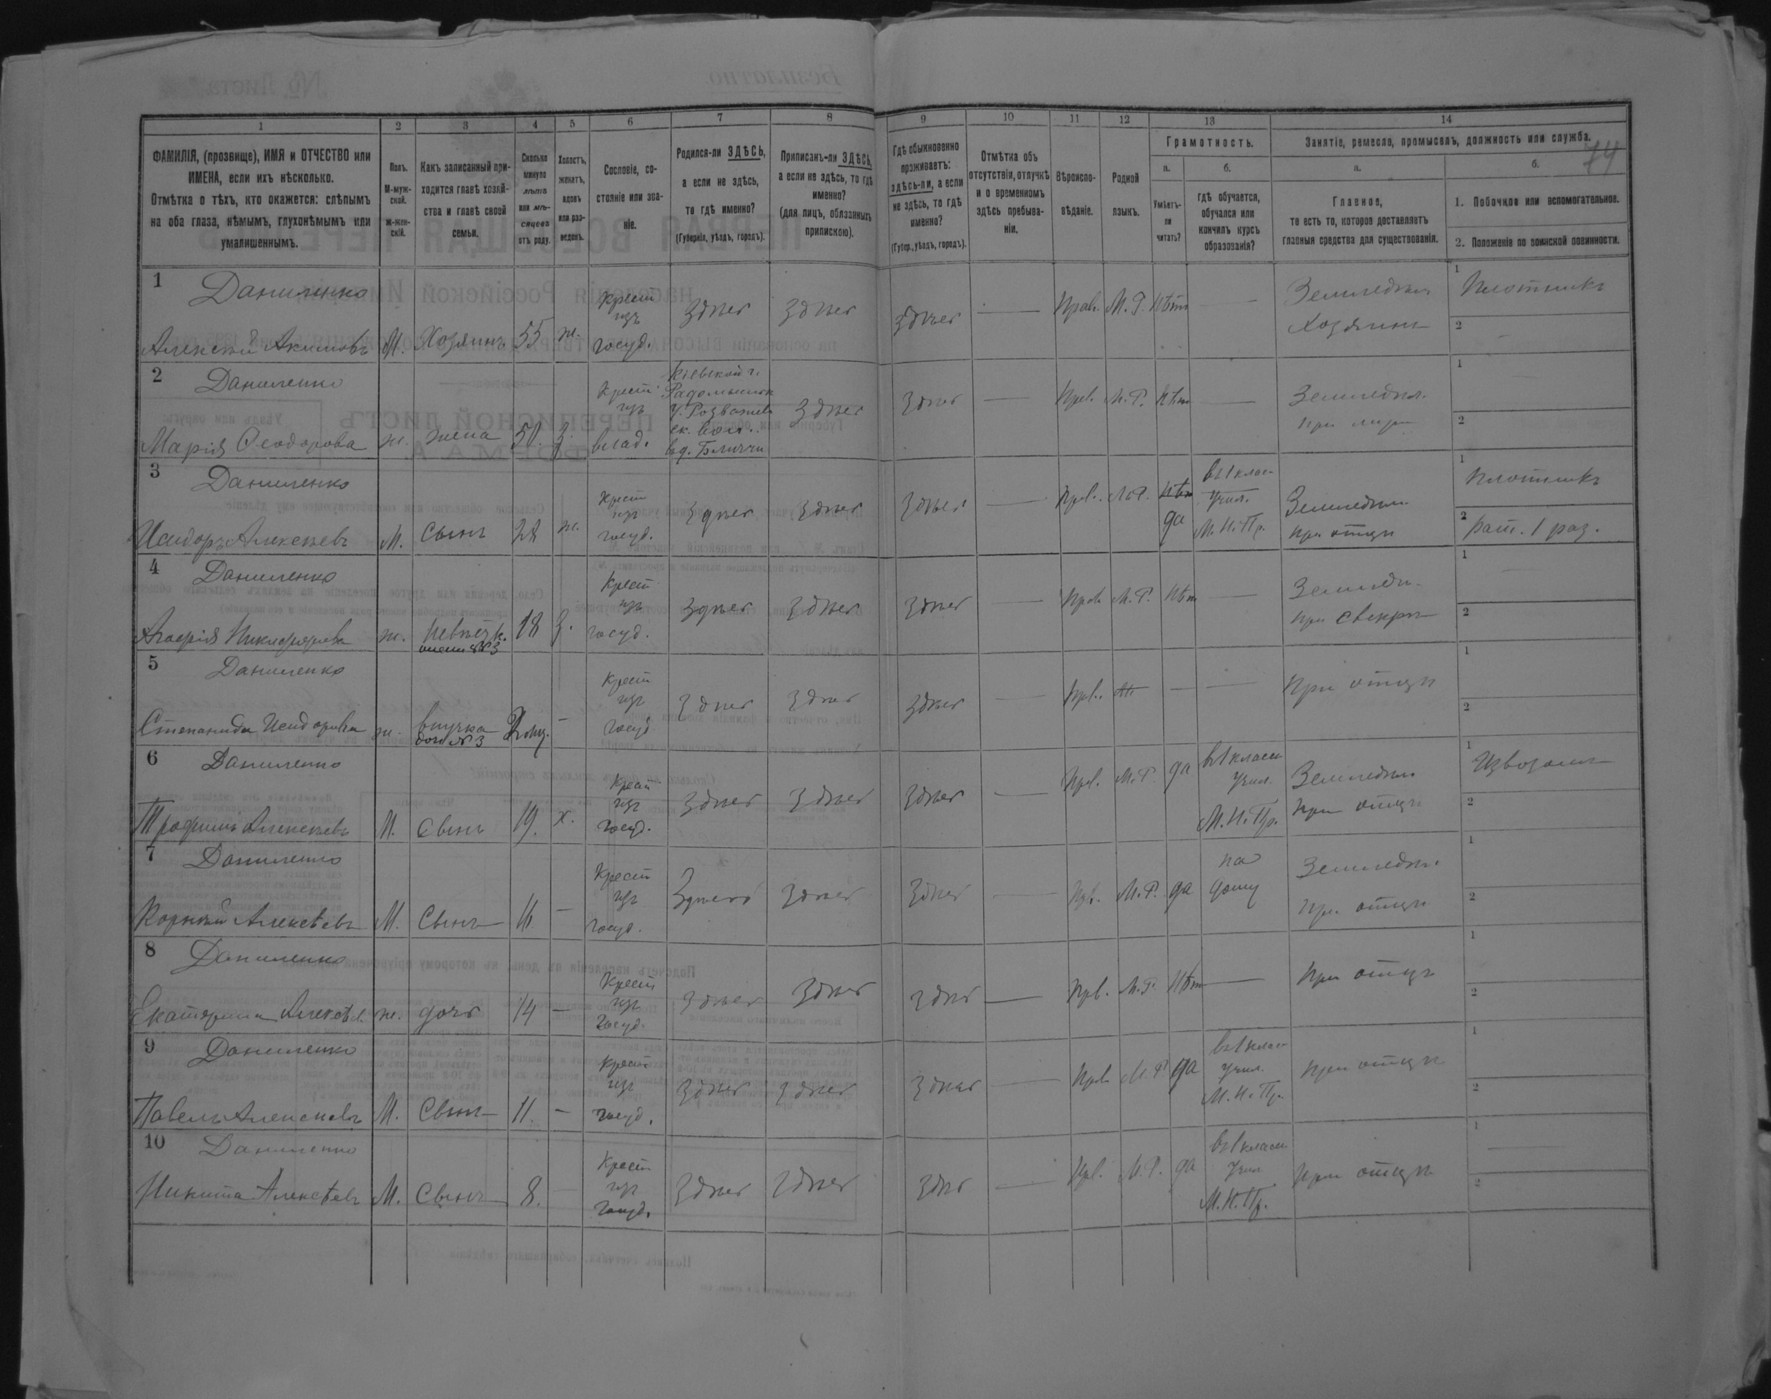 1 2 3 4 5 6 7 8 9 10 11 12 13 14
ФАМИЛІЯ, (прозвище), ИМЯ и ОТЧЕСТВО или
ИМЕНА, если ихъ нѣсколько.
Отмѣтка о тѣхъ, кто окажется: слѣпымъ
на оба глаза, нѣмымъ, глухонѣмымъ или
умалишеннымъ.
Полъ.
М-муж-
ской.
ж-жен-
скій.
Какъ записанный при-
ходится главѣ хозяй-
ства и главѣ своей
семьи.
Сколько
минуло
лѣтъ
или мѣ-
сяцевъ
отъ роду.
Холостъ,
женатъ,
вдовъ
или раз-
веденъ.
Сословіе, со-
стояніе или зва-
ніе.
Родился-ли ЗДѢСЬ,
а если не здѣсь,
то гдѣ именно?
(Губернія, уѣздъ, городъ).
Приписанъ-ли ЗДѢСЬ,
а если не здѣсь, то гдѣ
именно?
(для лицъ, обязанныхъ
припискою).
Гдѣ обыкновенно
проживаетъ:
здѣсь-ли, а если
не здѣсь, то гдѣ
именно?
(Губер., уѣздъ, городъ).
Отмѣтка объ
отсутствіи, отлучкѣ
и о временномъ
здѣсь пребыва-
ніи.
Вѣроиспо-
вѣданіе.
Родной
языкъ.
Грамотность.
а.
Умѣетъ-
ли
читать?
б.
гдѣ обучается,
обучался или
кончилъ курсъ
образованія?
Занятіе, ремесло, промыселъ, должность или служба.
74
а.
Главное,
то есть то, которое доставляетъ
главныя средства для существованія.
б.
1. Побочное или вспомогательное.
2. Положеніе по воинской повинности.
1 Даниленко
Алексѣй Акимовъ М. Хозяинъ 55 ж. Крест изъ госуд. Здѣсь Здѣсь Здѣсь — Прав. М.Р. Нѣтъ — Земледѣл. Хозяинъ 1 Плотникъ 2
2 Даниленко
Марія Ѳеодорова ж. жена 50. з. Крест изъ влад. Кіевской г. Радомысл. у. Здѣсь Здѣсь — Прв. М.Р. Нѣтъ — Земледѣл. при мужѣ 1 2
3 Даниленко
Исидоръ Алексѣевъ М. Сынъ 28 ж. Крест изъ госуд. Здѣсь Здѣсь Здѣсь — Прв. М.Р. да въ 1 клас. Учил. М.Н.Пр. Земледѣл. при отцѣ 1 Плотникъ 2 Рат. 1 раз.
4 Даниленко
Агафія Никифорова ж. Невѣстк. жена №3 18 з. Крест изъ госуд. Здѣсь Здѣсь Здѣсь — Прв. М.Р. Нѣтъ — Земледѣл. при свекрѣ 1 2
5 Даниленко
Степанида Исидорова ж. внучка дочь №3 — Крест изъ госуд. Здѣсь Здѣсь Здѣсь — Прв. — — При отцѣ 1 2
6 Даниленко
Трофимъ Алексѣевъ М. Сынъ 19. х. Крест изъ госуд. Здѣсь Здѣсь Здѣсь — Прв. М.Р. да въ 1 классн. Учил. М.Н.Пр. Земледѣл. при отцѣ 1 Извозомъ 2
7 Даниленко
Корній Алексѣевъ М. Сынъ — Крест изъ госуд. Здѣсь Здѣсь Здѣсь — Прв. М.Р. да на дому Земледѣл. при отцѣ 1 2
8 Даниленко
Екатерина Алексѣев. ж. дочь 14 — Крест изъ госуд. Здѣсь Здѣсь Здѣсь — Прв. М.Р. Нѣтъ — При отцѣ 1 2
9 Даниленко
Павелъ Алексѣевъ М. Сынъ 11. — Крест изъ госуд. Здѣсь Здѣсь Здѣсь — Прв. М.Р. да въ 1 класс. Учил. М.Н.Пр. При отцѣ 1 2
10 Даниленко
Никита Алексѣевъ М. Сынъ 8. — Крест изъ госуд. Здѣсь Здѣсь Здѣсь — Прв. М.Р. да въ 1 классн. Учил. М.Н.Пр. При отцѣ 1 2